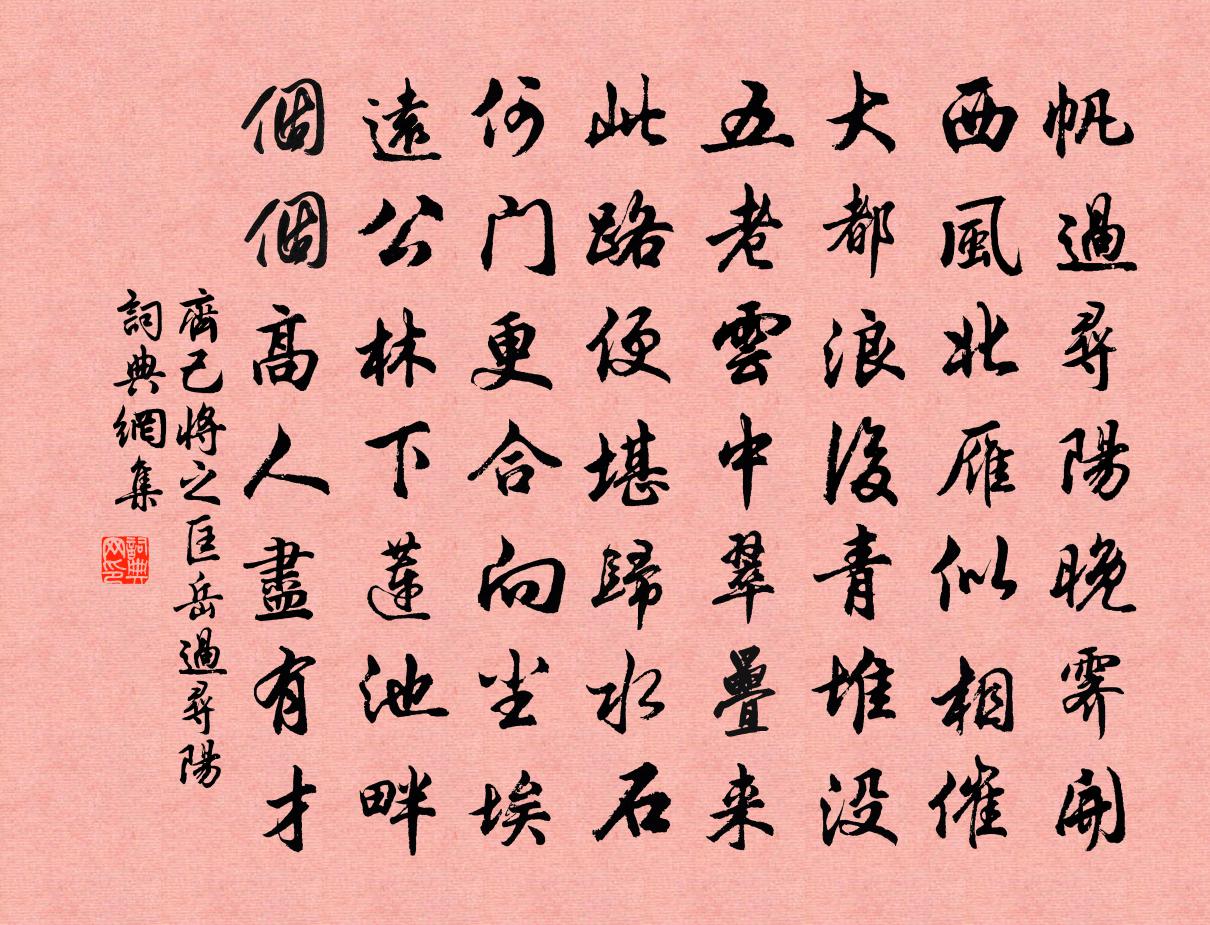 帆過尋陽晚霽開
西風北雁似相催
大都浪後青堆没
五老雲中翠疊来
此路便堪歸水石
何门更合向尘埃
遠公林下蓮池畔
個個高人盡有才
齊己将之匡岳過尋陽
詞典網集
詞典网印